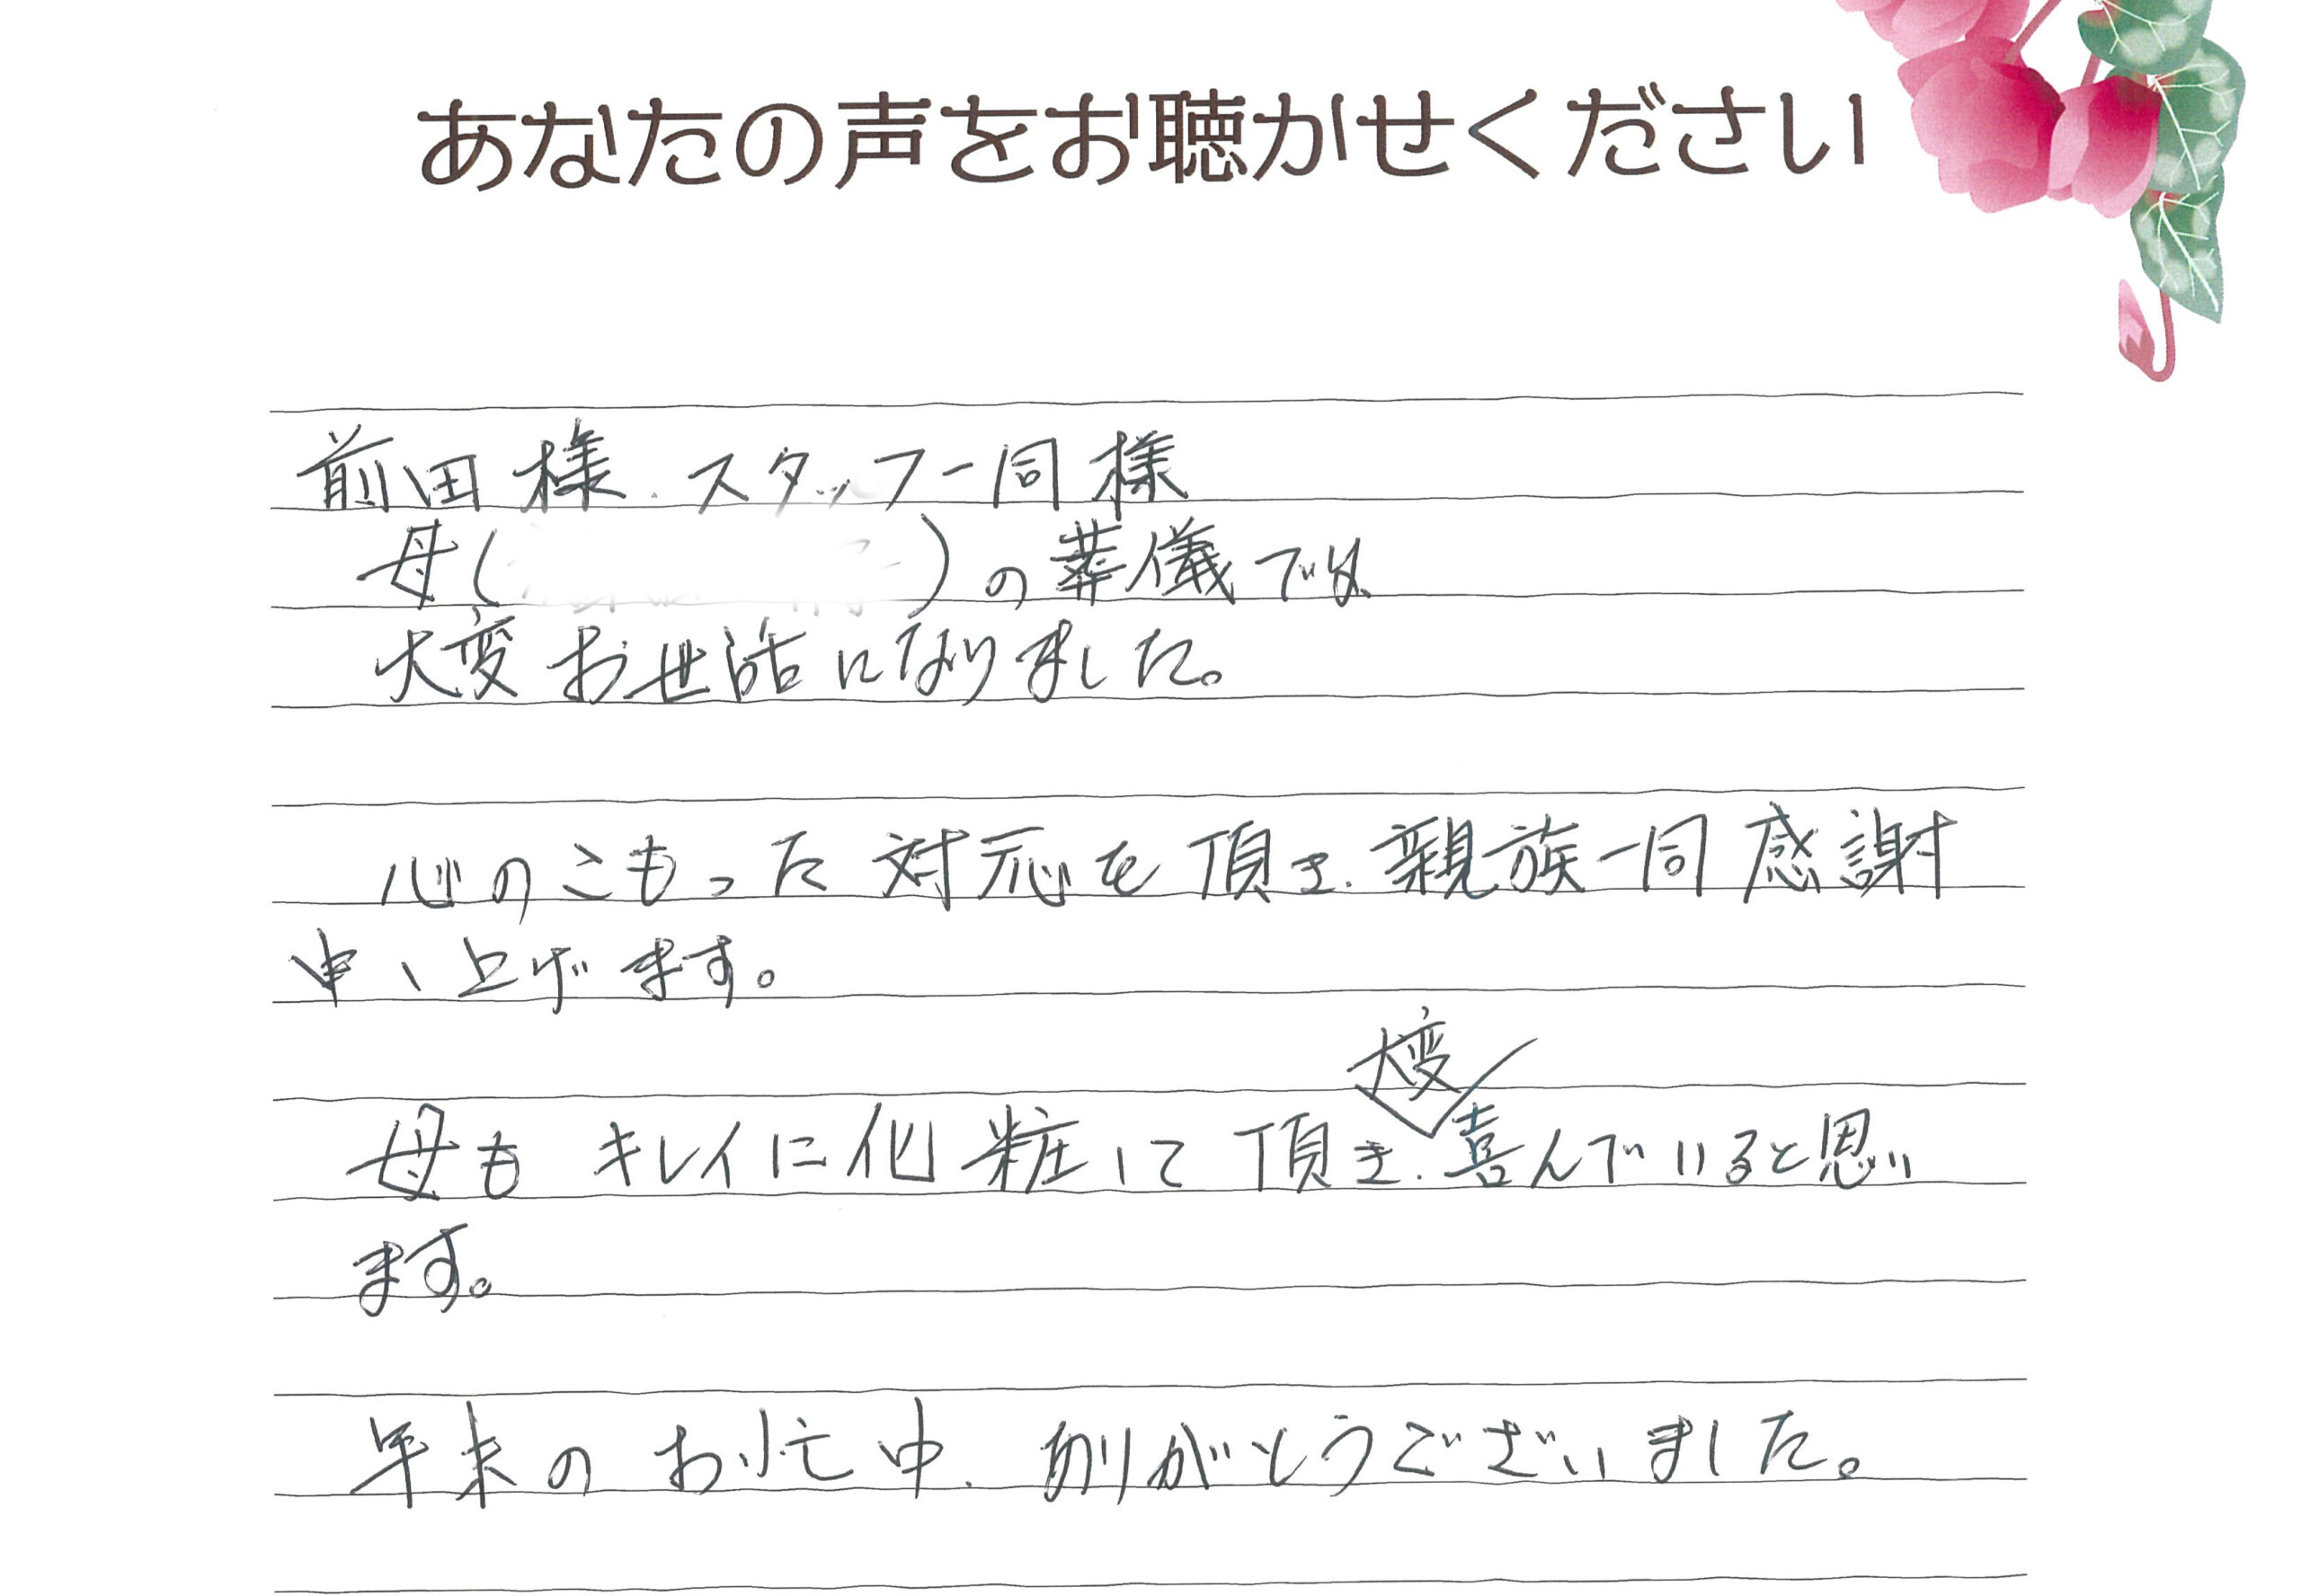 あなたの声をお聴かせください
前田様、スタッフ一同様
母(　)の葬儀では、
大変お世話になりました。
心のこもった対応を頂き、親族一同感謝
申し上げます。
大変
母もキレイに化粧して頂き、喜んでいると思い
ます。
年末のお忙中、ありがとうございました。